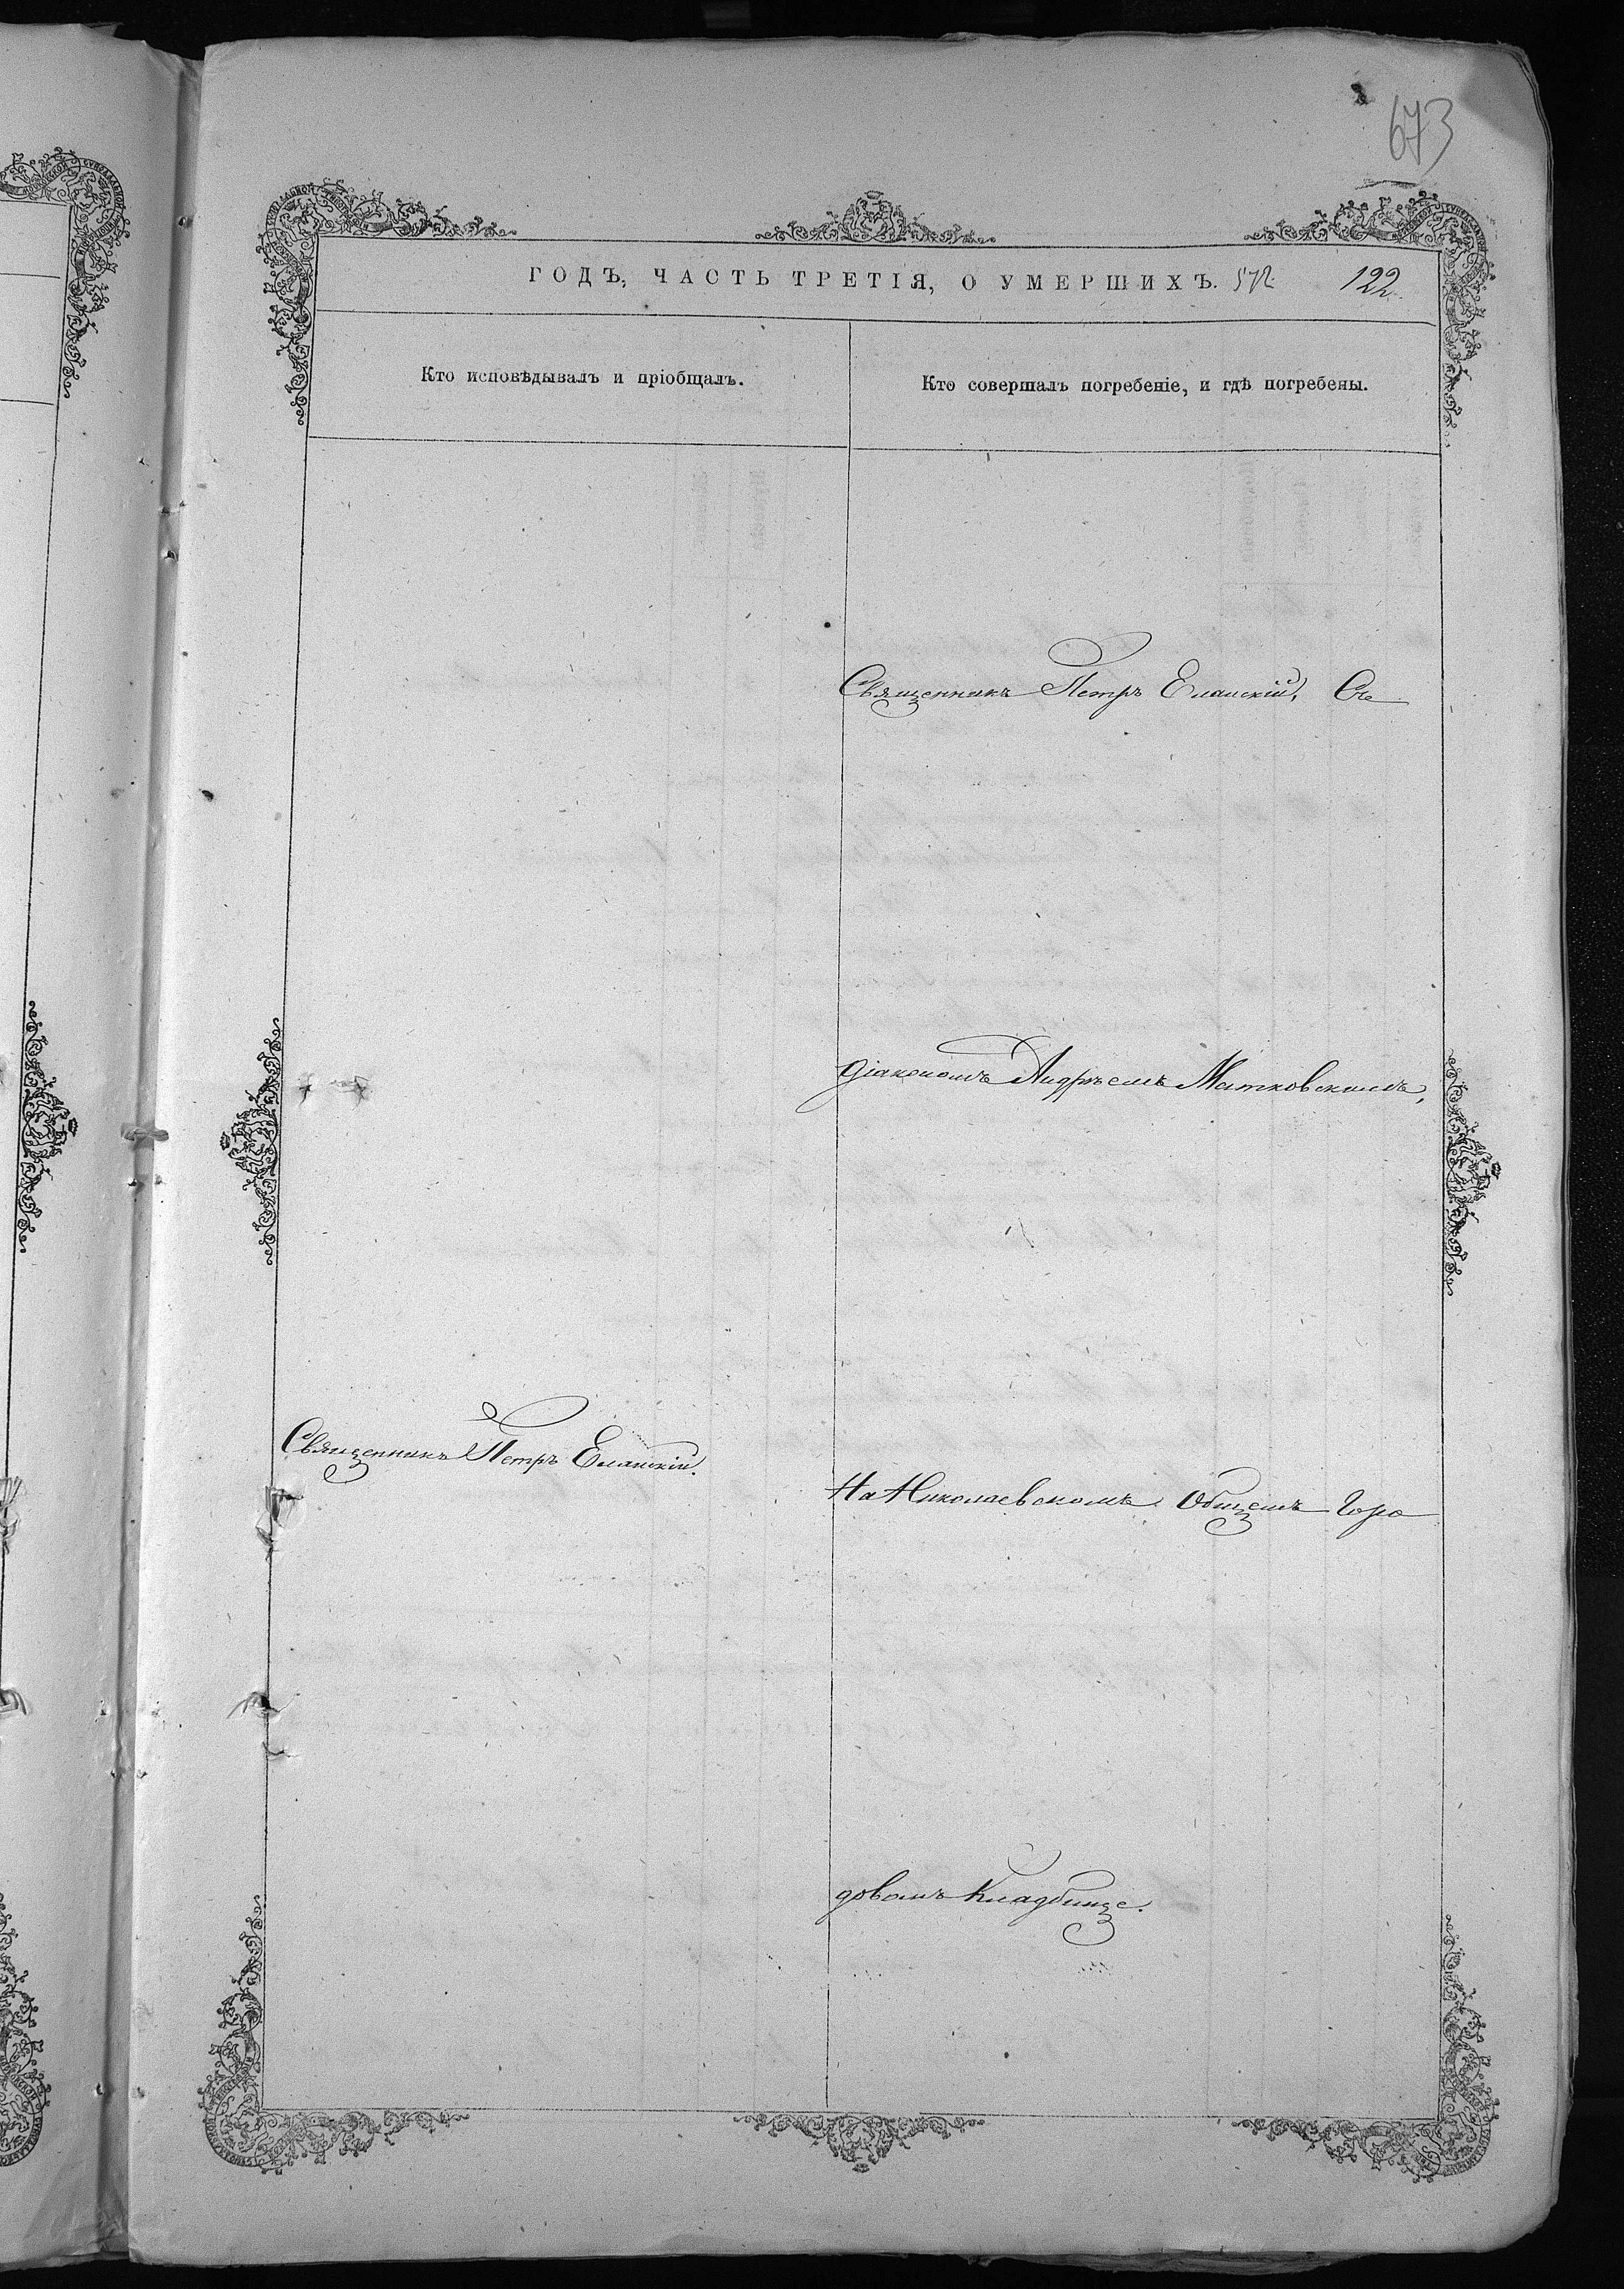 673
ГОДЪ, ЧАСТЬ ТРЕТІЯ, О УМЕРШИХЪ. 572. 122.
Кто исповѣдывалъ и пріобщалъ.
Кто совершалъ погребеніе, и гдѣ погребены.
Священникъ Петръ Еланскій, Съ
діакономъ Андреемъ Матковскимъ,
Священникъ Петръ Еланскій.
На Николаевскомъ Общемъ Горо
довомъ Кладбище.